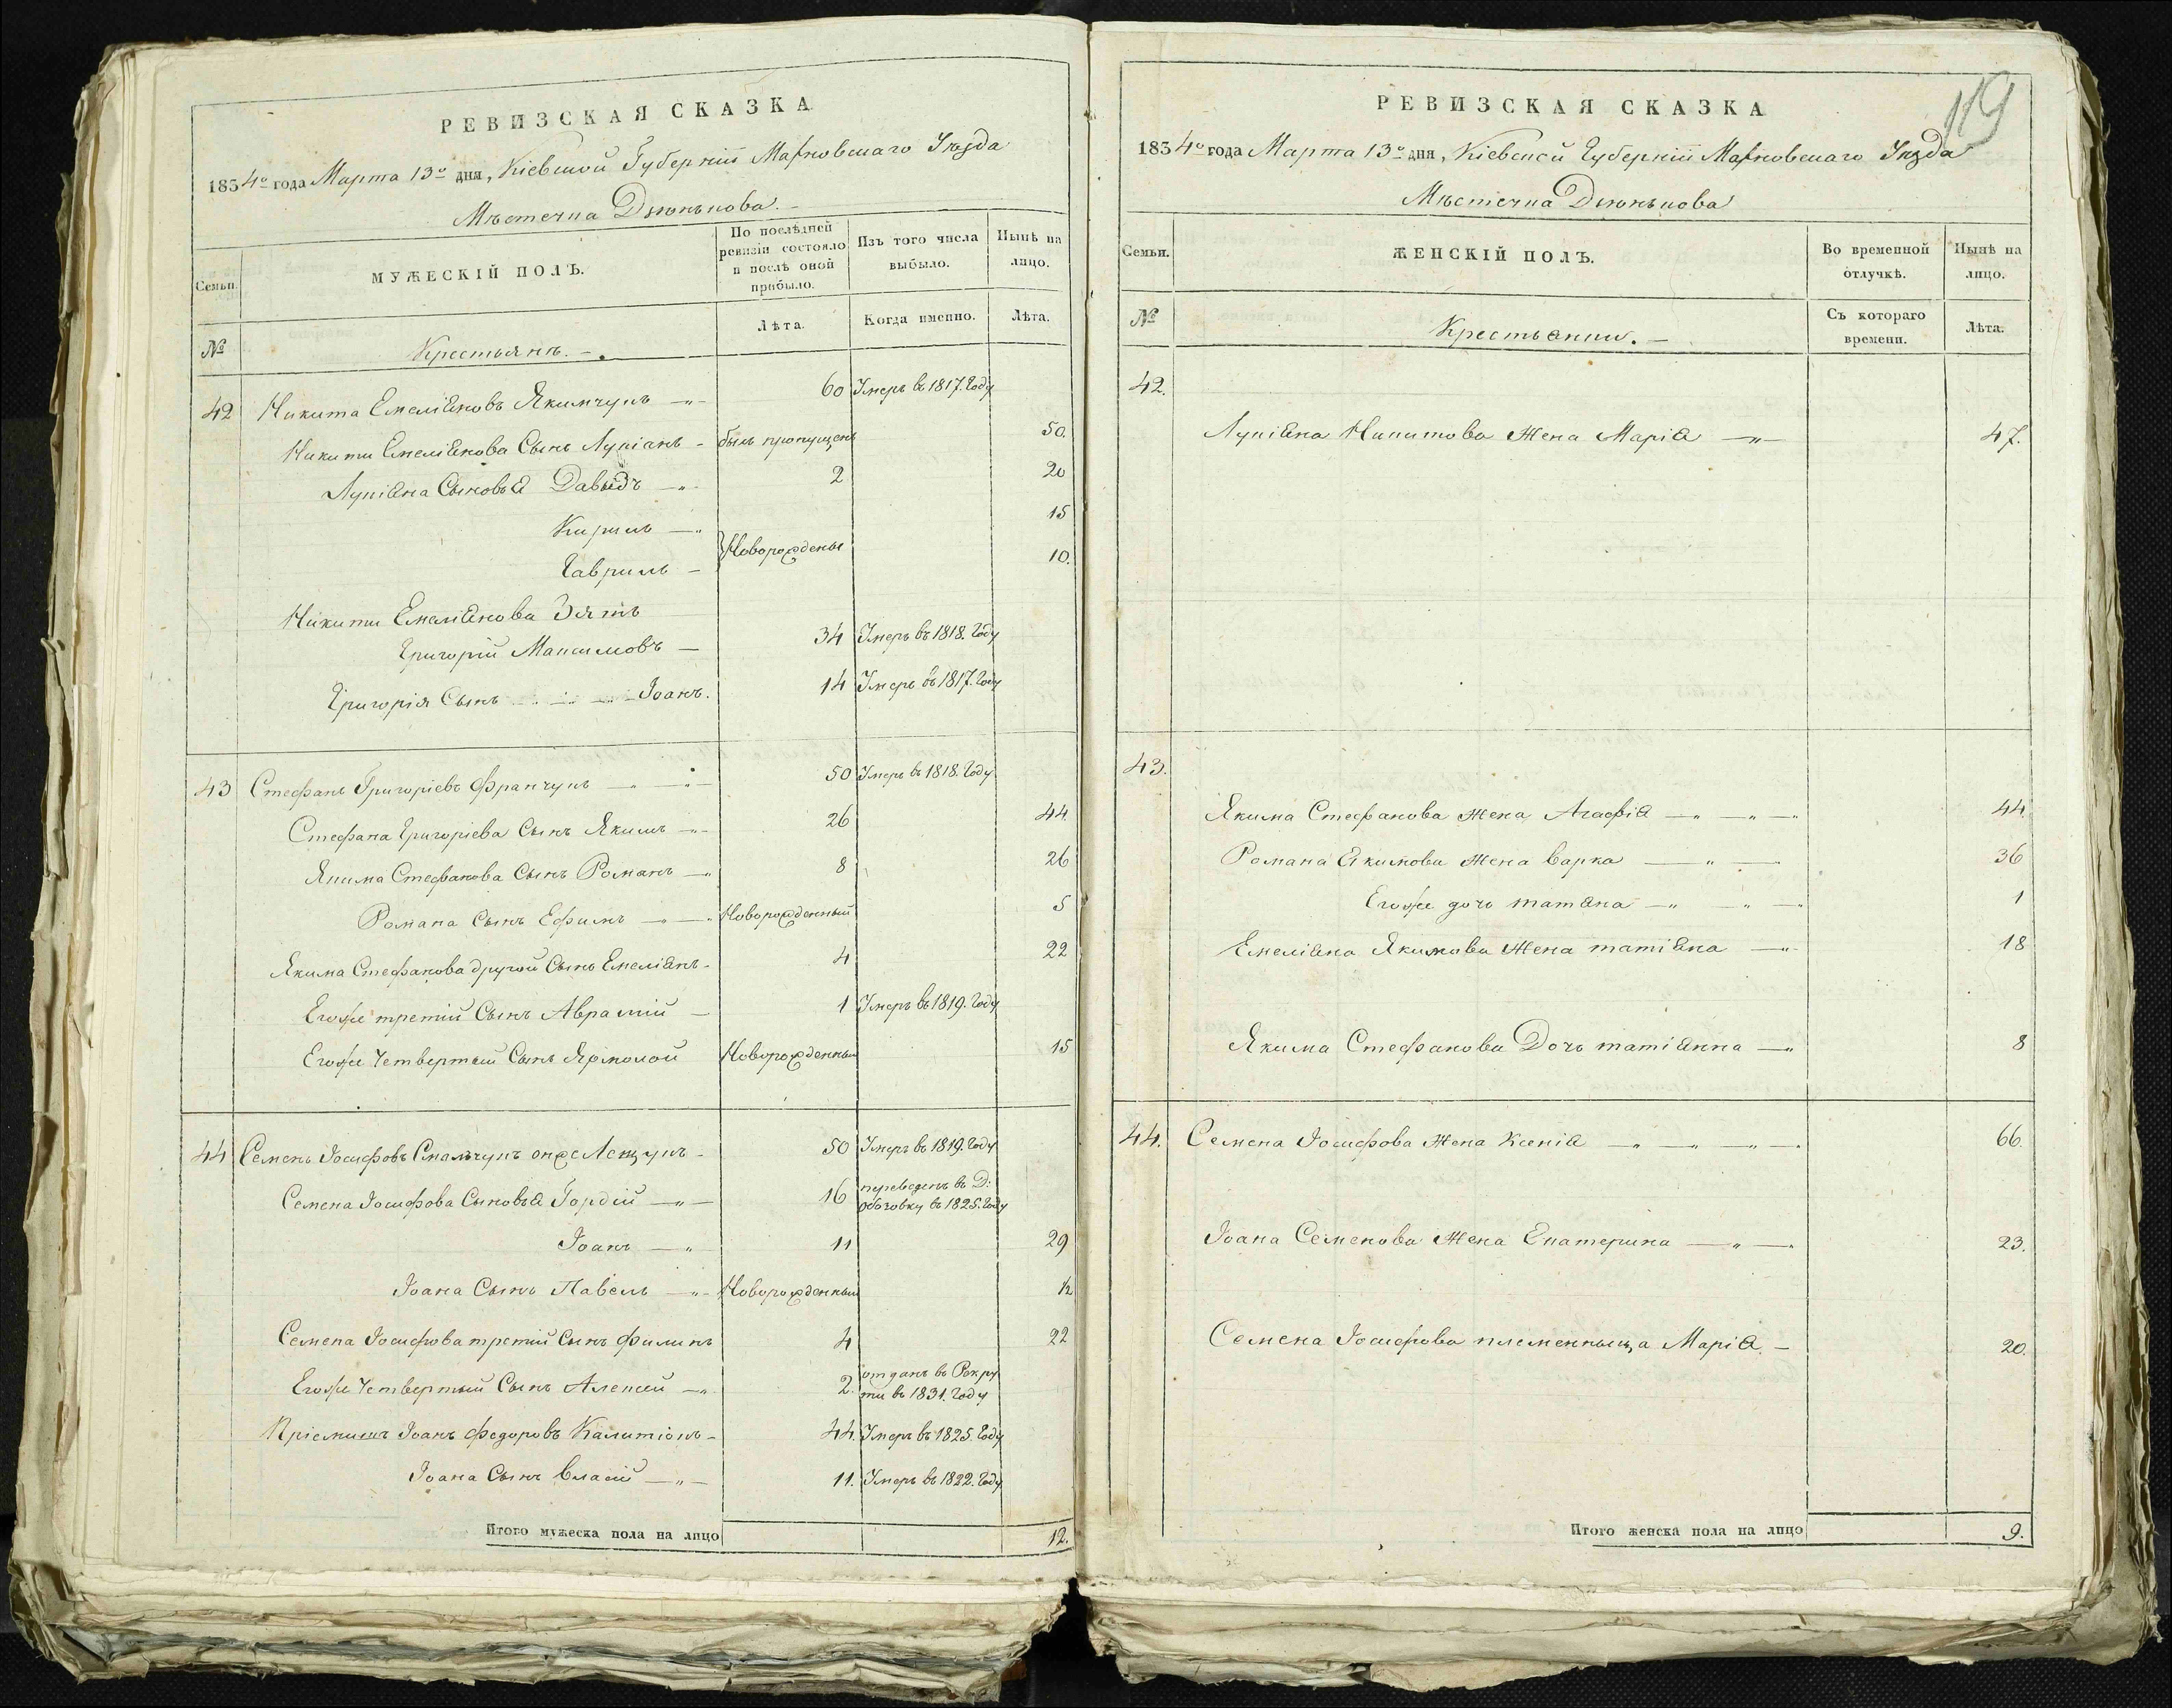 РЕВИЗСКАЯ СКАЗКА
1834го года Марта 13го дня, Кіевской Губерніи Махновскаго Уѣзда
Мѣстечка Дзюнькова.
Семьи.
МУЖЕСКІЙ ПОЛЪ.
По послѣдней ревизіи состояло и послѣ оной прибыло.
Изъ того числа выбыло.
Нынѣ на лицо.
№
Крестьянъ.
Лѣта.
Когда именно.
Лѣта.
42 Никита Емеліановъ Якимчукъ 60 Умеръ въ 1817. Году
Никиты Емеліанова Сынъ Лукіанъ былъ пропущенъ 50.
Лукіана Сыновья Давыдъ 2 20
Кирилъ 15
Новорождены
Гаврилъ 10.
Никиты Емеліанова Зять
Григорій Максимовъ 34 Умеръ въ 1818. Году
Григорія Сынъ Іоанъ. 14 Умеръ въ 1817. Году
43 Стефанъ Григоріевъ Франчукъ 50 Умеръ въ 1818. Году
Стефана Григоріева Сынъ Якимъ 26 44
Якима Стефанова Сынъ Романъ 8 26
Романа Сынъ Ефимъ Новорожденный 5
Якима Стефанова другой Сынъ Емеліанъ 4 22
Егоже третій Сынъ Аврамій 1 Умеръ въ 1819. Году
Егоже Четвертый Сынъ Ярмолой Новорожденный 15
44 Семенъ Іосифовъ онже 50 Умеръ въ 1819. Году
Семена Іосифова Сыновья Гордій 16 переведенъ въ Д: въ 1825. Году
Іоанъ 11 29
Іоана Сынъ Павелъ Новорожденный ½
Семена Іосифова третій Сынъ Филипъ 4 22
Егоже Четвертый Сынъ Алексей 2. отданъ въ Рекруты въ 1831. Году
Пріемышъ Іоанъ Федоровъ 44. Умеръ въ 1825. Году
Іоана Сынъ Власій 11. Умеръ въ 1822. Году
Итого мужеска пола на лицо 12.
119
РЕВИЗСКАЯ СКАЗКА
1834го года Марта 13го дня, Кіевской Губерніи Махновскаго Уѣзда
Мѣстечка Дзюнькова
Семьи.
ЖЕНСКІЙ ПОЛЪ.
Во временной отлучкѣ.
Нынѣ на лицо.
№
Крестьянки.
Съ котораго времени.
Лѣта.
42.
Лукіана Никитова Жена Марія 47.
43.
Якима Стефанова Жена Агафія 44
Романа Якимова Жена Варка 36
Егоже дочь татяна 1
Емеліана Якимова Жена татіана 18
Якима Стефанова Дочь татіанна 8
44. Семена Іосифова Жена Ксенія 66.
Іоана Семенова Жена Екатерина 23.
Семена Іосифова племенныца Марія 20.
Итого женска пола на лицо 9.